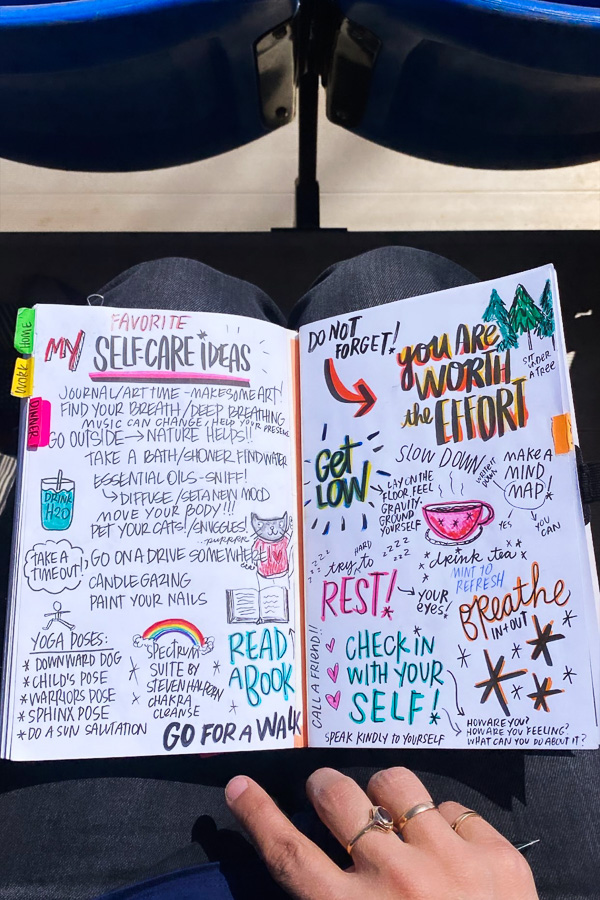 HOME
WORK
DINNER
MY FAVORITE
SELF-CARE IDEAS
JOURNAL/ART TIME - MAKE SOME ART!
FIND YOUR BREATH / DEEP BREATHING
MUSIC CAN CHANGE, HELP YOUR PRESENT
GO OUTSIDE → NATURE HELPS!!
TAKE A BATH/SHOWER FIND WATER
ESSENTIAL OILS - SNIFF!
↳ DIFFUSE / SET A NEW MOOD
MOVE YOUR BODY!!!
PET YOUR CATS! / SNUGGLES!
PURRRR
DRINK
H2O
TAKE A
TIMEOUT!
GO ON A DRIVE SOMEWHERE
CANDLE GAZING
PAINT YOUR NAILS
YOGA POSES:
* DOWNWARD DOG
* CHILD'S POSE
* WARRIORS POSE
* SPHINX POSE
* DO A SUN SALUTATION
SPECTRUM
SUITE BY
STEVEN HALPERN
CHAKRA
CLEANSE
READ
A BOOK
GO FOR A WALK
DO NOT
FORGET!
YOU ARE
WORTH
the EFFORT
SIT
UNDER
A TREE
GET
LOW!
LAY ON THE
FLOOR, FEEL
GRAVITY
GROUND
YOURSELF
SLOW DOWN
MAKE A
MIND
MAP!
YES
YOU
CAN
zzzz
zzzz
try HARD to
REST!
→ YOUR
EYES!
* drink tea *
MINT TO
REFRESH
BReathe
IN + OUT
CALL A FRIEND!!
CHECK IN
WITH YOUR
SELF!
HOW ARE YOU?
HOW ARE YOU FEELING?
WHAT CAN YOU DO ABOUT IT?
SPEAK KINDLY TO YOURSELF